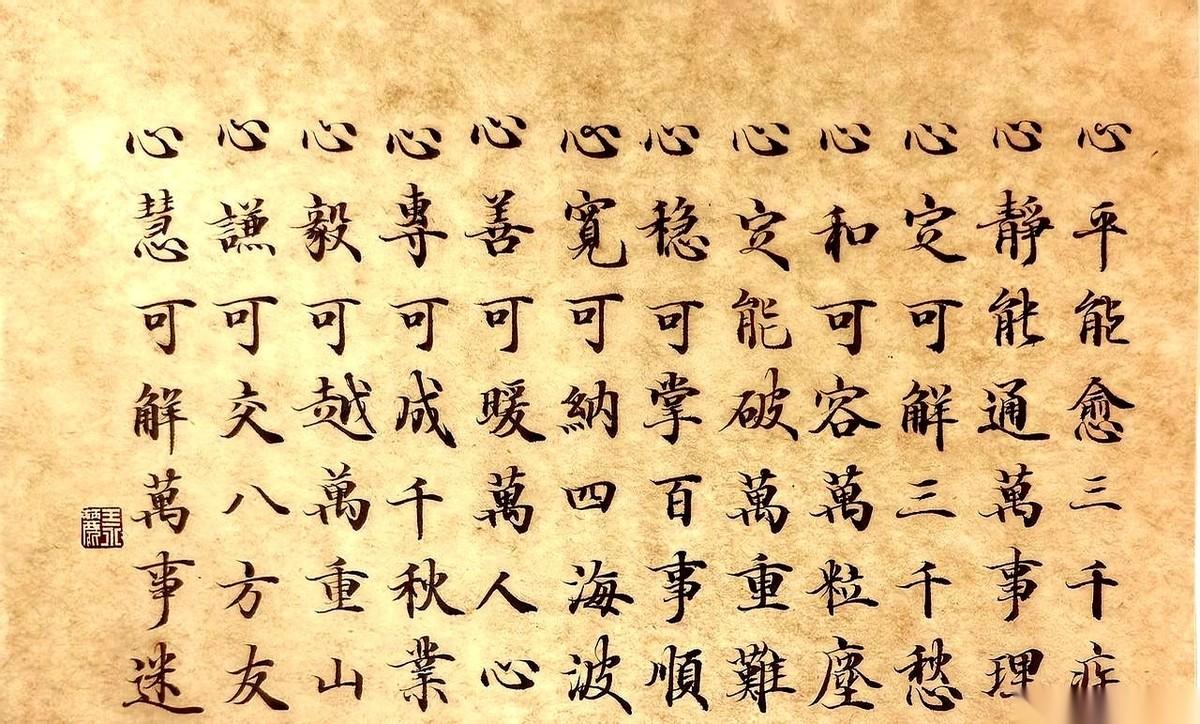 心平能愈三千疾
心靜能通萬事理
心定可解三千愁
心和可容萬粒塵
心定能破萬重難
心稳可掌百事順
心寬可納四海波
心善可暖萬人心
心專可成千秋業
心毅可越萬重山
心謙可交八方友
心慧可解萬事迷